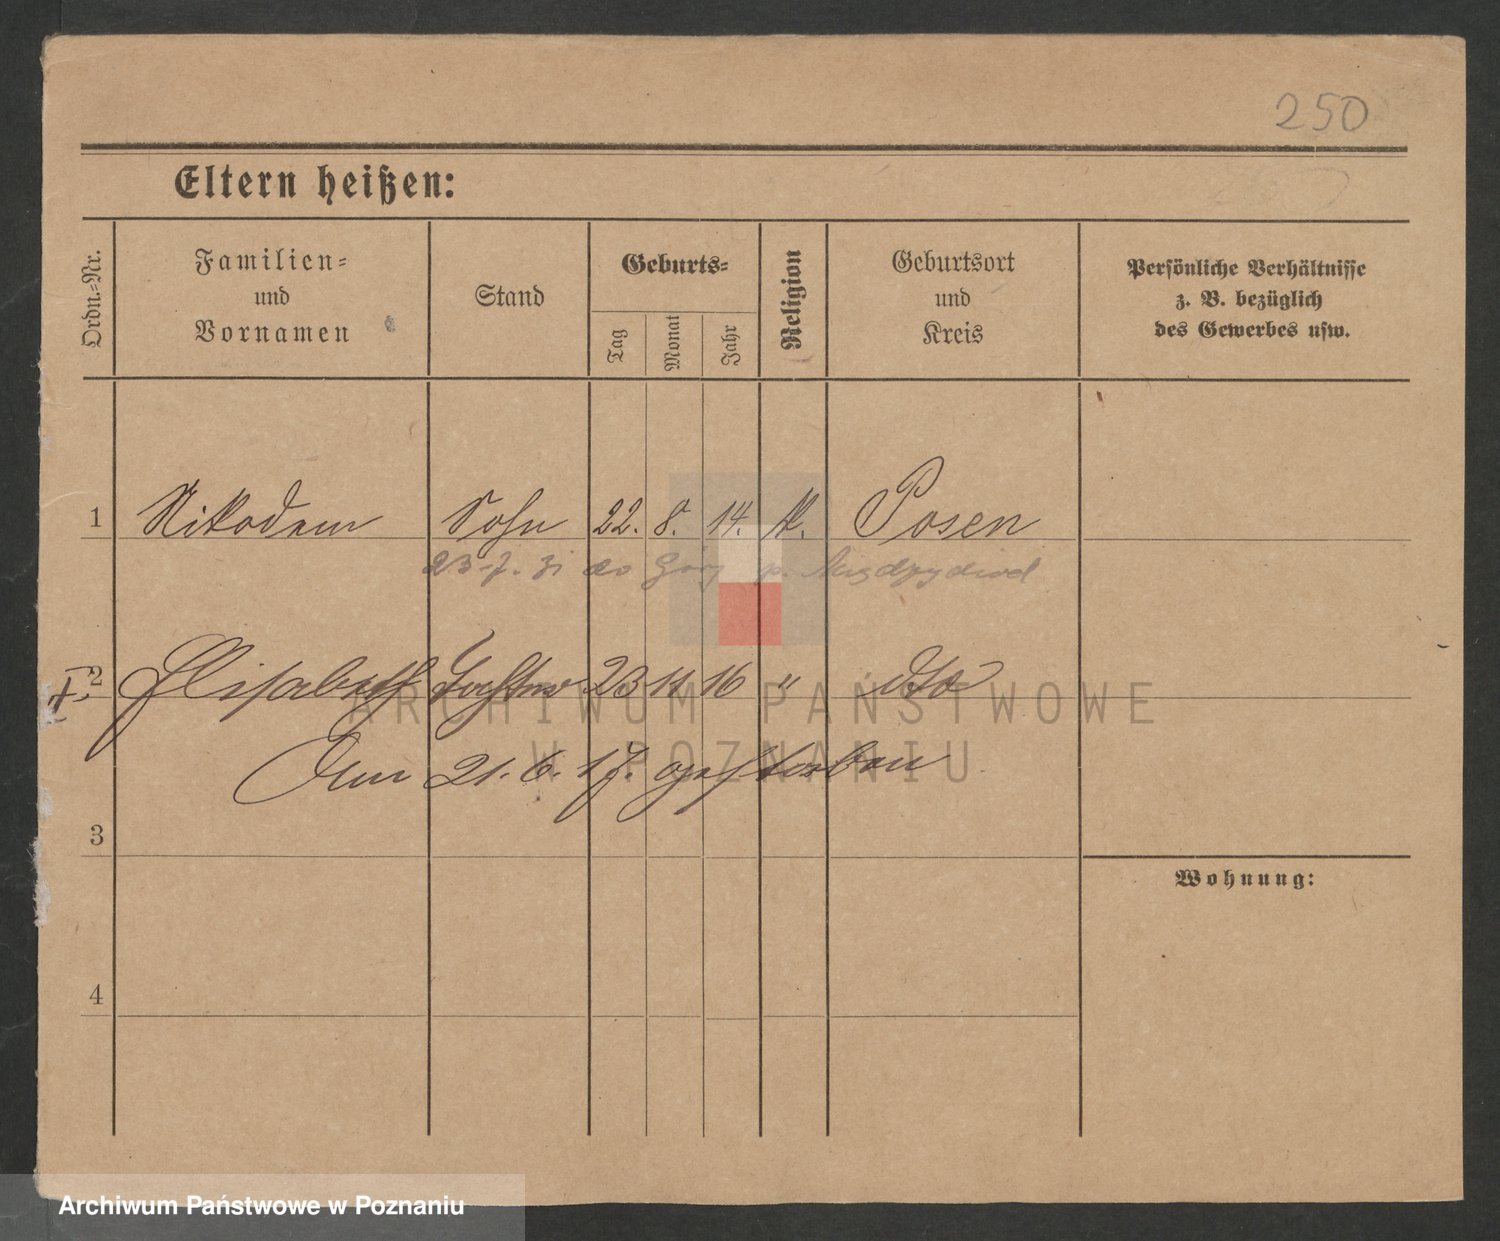 250
Eltern heißen:
Ordn.-Nr.
Familien- und Vornamen
Stand
Geburts-
Tag
Monat
Jahr
Religion
Geburtsort und Kreis
Persönliche Verhältnisse
z. B. bezüglich
des Gewerbes usw.
1 Nikodem Sohn 22. 8. 14. k. Posen
23.7.31 do Góry p.
2 Elisabeth Tochter 23 11 16 " dto
Am 21. 6. 17. gestorben
ARCHIWUM PAŃSTWOWE
W POZNANIU
3
Wohnung:
4
Archiwum Państwowe w Poznaniu